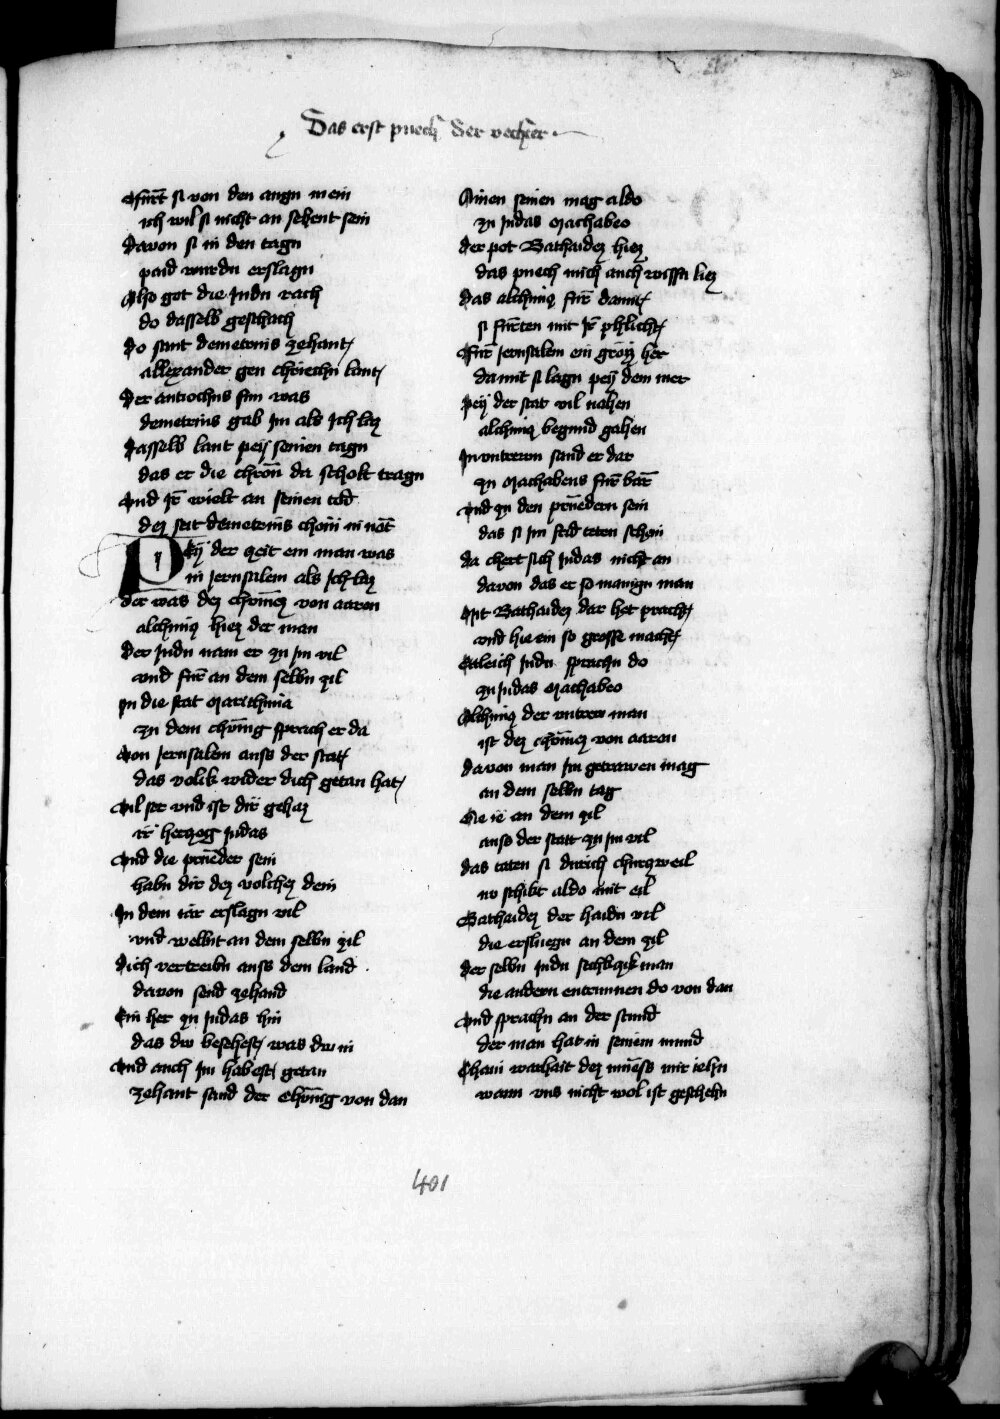 Das erst puech der vechter
Fürt si von den augn mein
ich wil si nicht an sehent sein
Davon si in den tagn
paid wurdn erslagn
Also got die Judn rach
do dasselb geschach
Do sant demetrius zehant
allexander gen chriechn lant
Der antiochus sun was
demetrius gab im als ich laz
Dasselb lant peÿ seinen tagn
das er die chron da scholt tragn
Und Ir wielt an seinen tod
dez seit demetrius chom in not
Peÿ der zeit ein man was
in Jerusalem als ich laz
der was dez chunez von aaron
alchimiz hiez der man
Der Judn nam er zu im vil
vnd fur an dem selbn zil
In die stat
zu dem chunig sprach er da
Von Jerusalem auss der stat
das volik wider dich getan hat
Vil ser vnd ist dir gehaz
ir herzog Judas
Vnd die prueder sein
habn dir dez volchez dein
In dem iar erslagn vil
vnd wellnt an dem selbn zil
Dich vertreibn auss dem land
davon send zehand
Ein her zu Judas hin
das dw besehest was dw in
Vnd auch im habest getan
zehant sand der chunig von dan
Ainen seinen mag aldo
zu Judas Machabeo
der pot Bathaidez hiez
das puech mich auch wissn liez
das alchimiz fur damit
si fürten mit Ir phlicht
Für Jerusalem ein groz her
damit si lagn peÿ dem mer
Peÿ der stat vil nahen
alchimiz begund gahen
In vntrewn sand er dar
zu Machabeus fur bar
Vnd zu den pruedern sein
das si im frid teten schein
da chert sich Judas nicht an
davon das er so manign man
Mit Bathaidez dar het pracht
vnd hie ein so grosse macht
Etleich Judn sprachn do
zu Judas Machabeo
Alchimiz der vntrew man
ist dez chunez von aaron
davon man im getrawen mag
an dem selbn tag
Gie ie an dem zil
auss der statt zu im vil
das taten si durich churzweil
no schikt aldo mit eil
Bathaidez der haidn vil
die erslugn an dem zil
der selbn Judn sechkzik man
die andern entrunnen do von dan
Vnd sprachn an der stund
der man hat in seinem mund
Chain warhait dez muess mir iehn
wann vns nicht wol ist geschehn
401